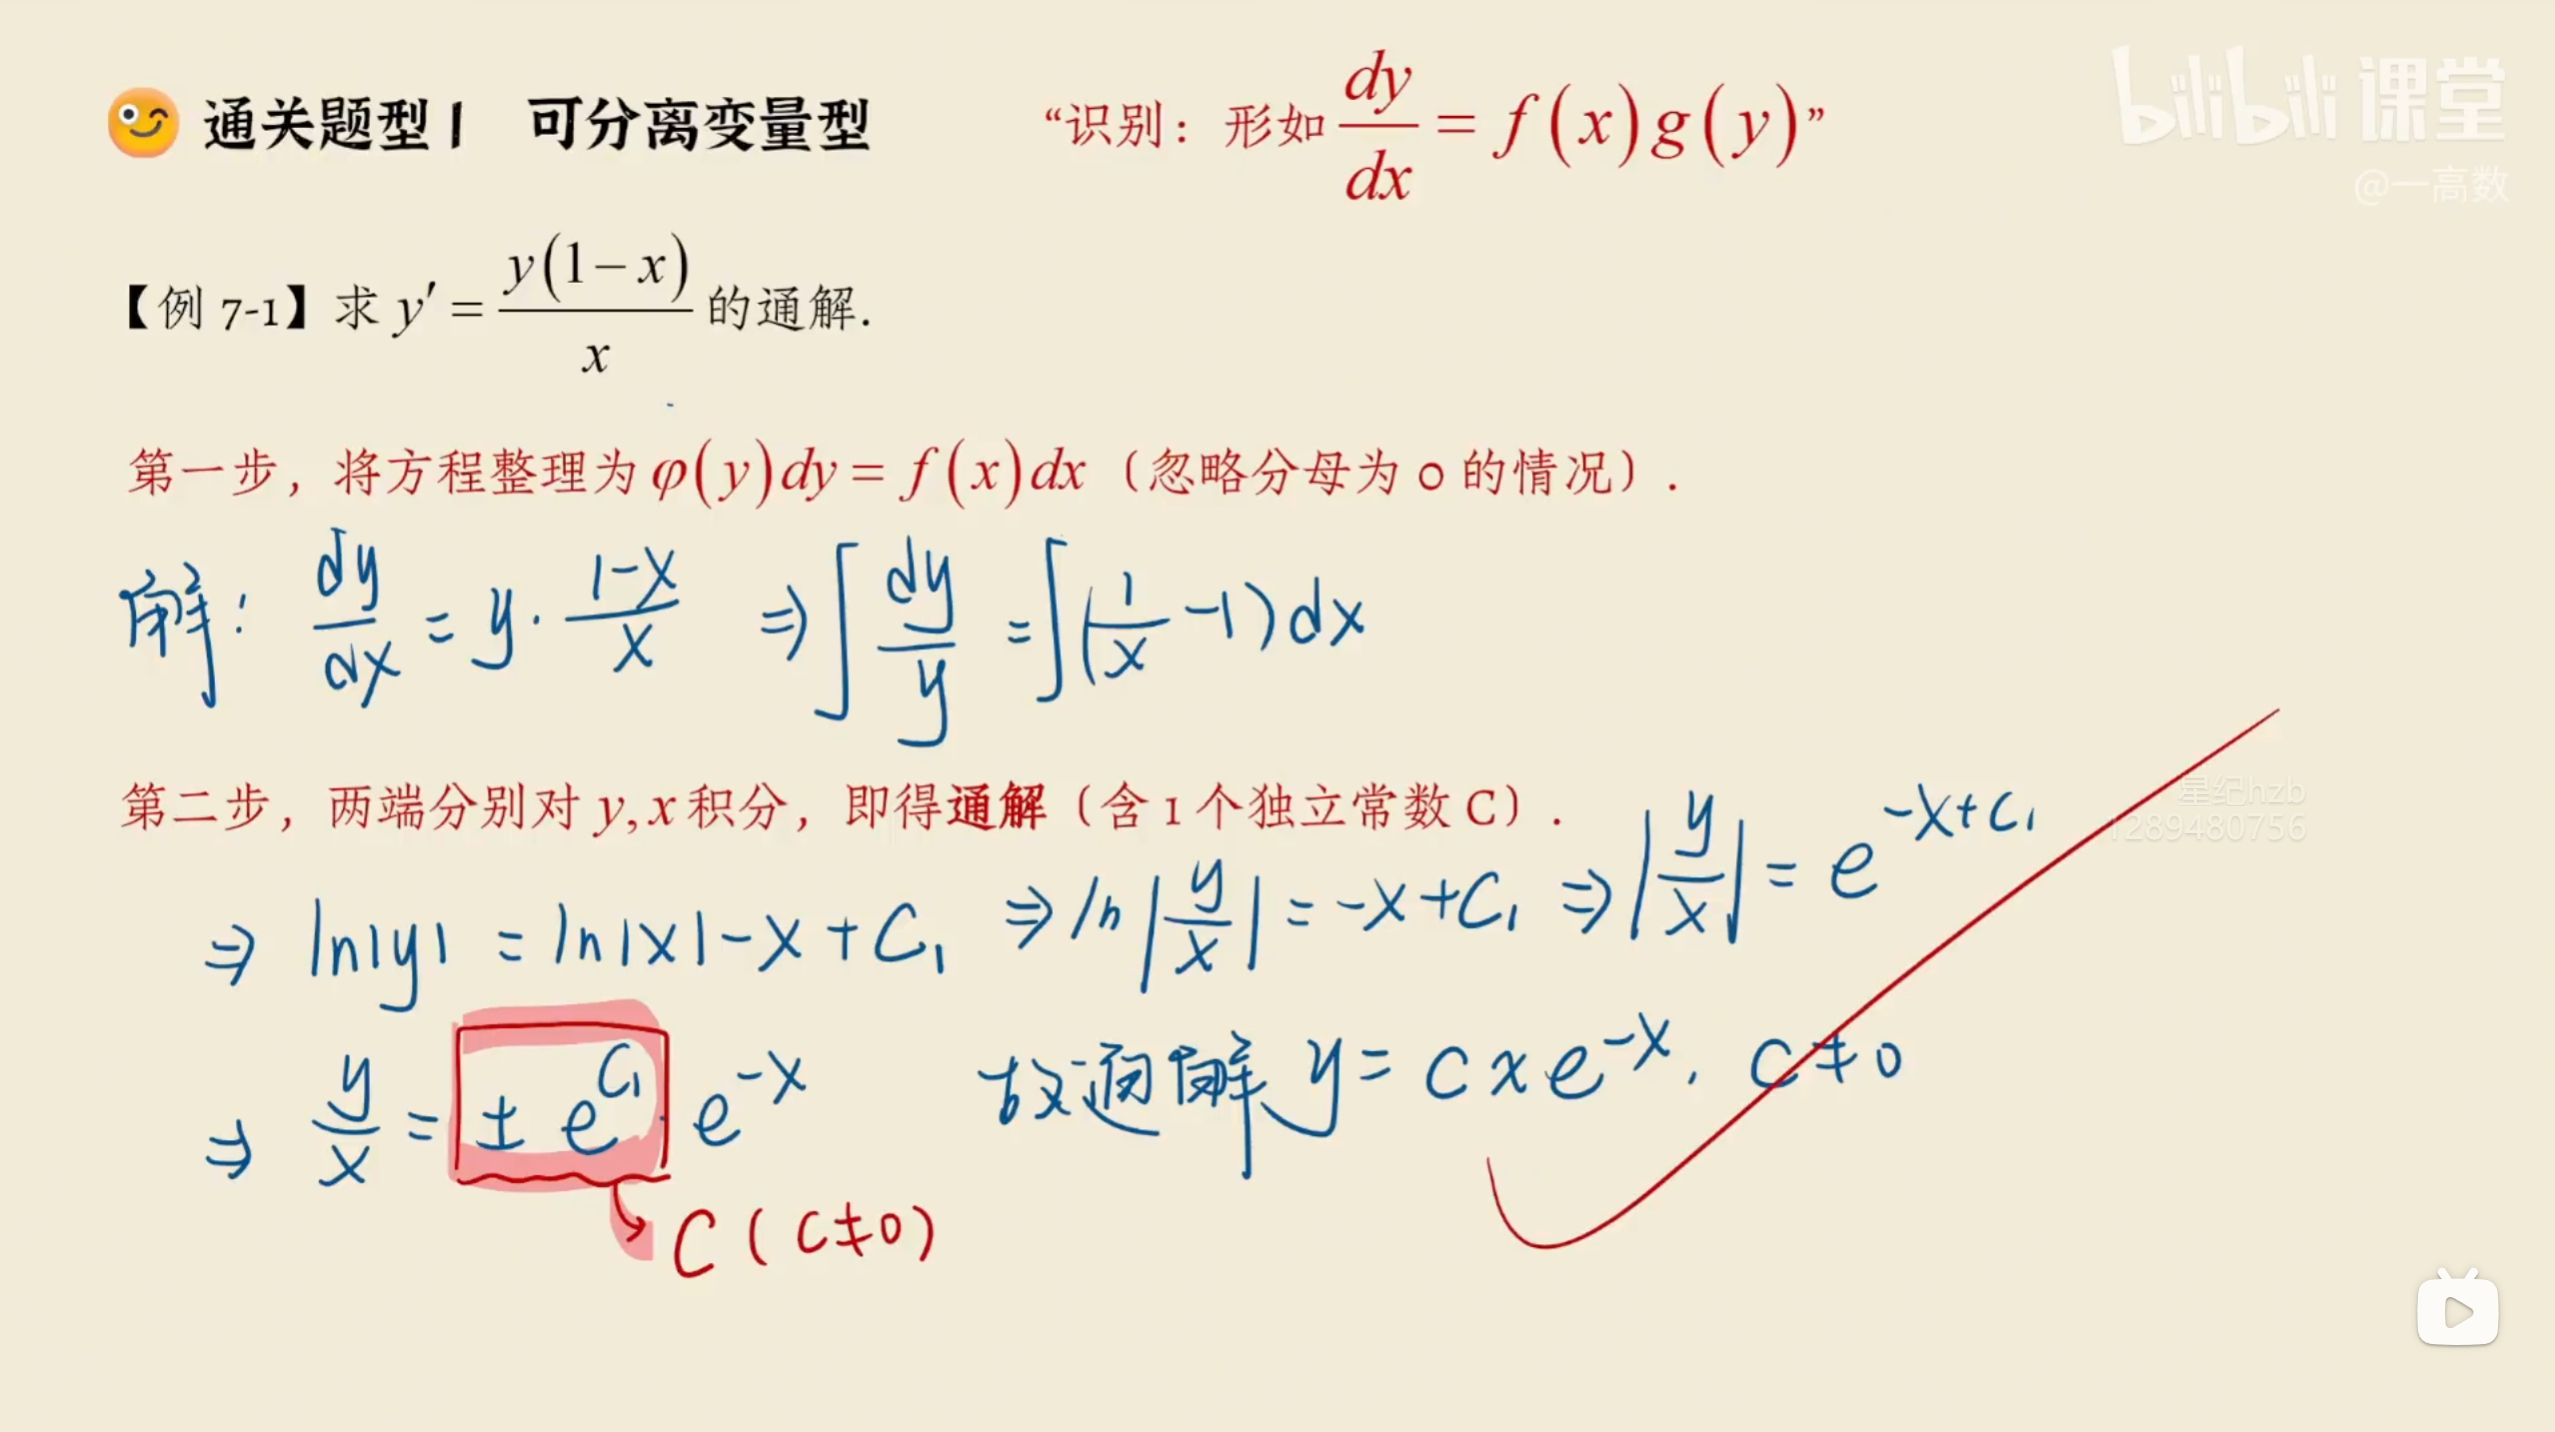 通关题型1 可分离变量型 “识别：形如 dy/dx = f(x)g(y)”
bilibili 课堂
@一高数
【例 7-1】求 y′ = y(1−x)/x 的通解.
第一步，将方程整理为 φ(y)dy = f(x)dx（忽略分母为 0 的情况）.
解: dy/dx = y · (1-x)/x ⇒ ∫ dy/y = ∫ (1/x - 1) dx
星纪hzb
1289480756
第二步，两端分别对 y, x 积分，即得通解（含 1 个独立常数 C）.
⇒ ln|y| = ln|x| - x + C₁ ⇒ ln|y/x| = -x + C₁ ⇒ |y/x| = e^(-x+C₁)
⇒ y/x = ± e^(C₁) · e^(-x) 故通解 y = C x e^(-x), C ≠ 0
C ( C ≠ 0 )